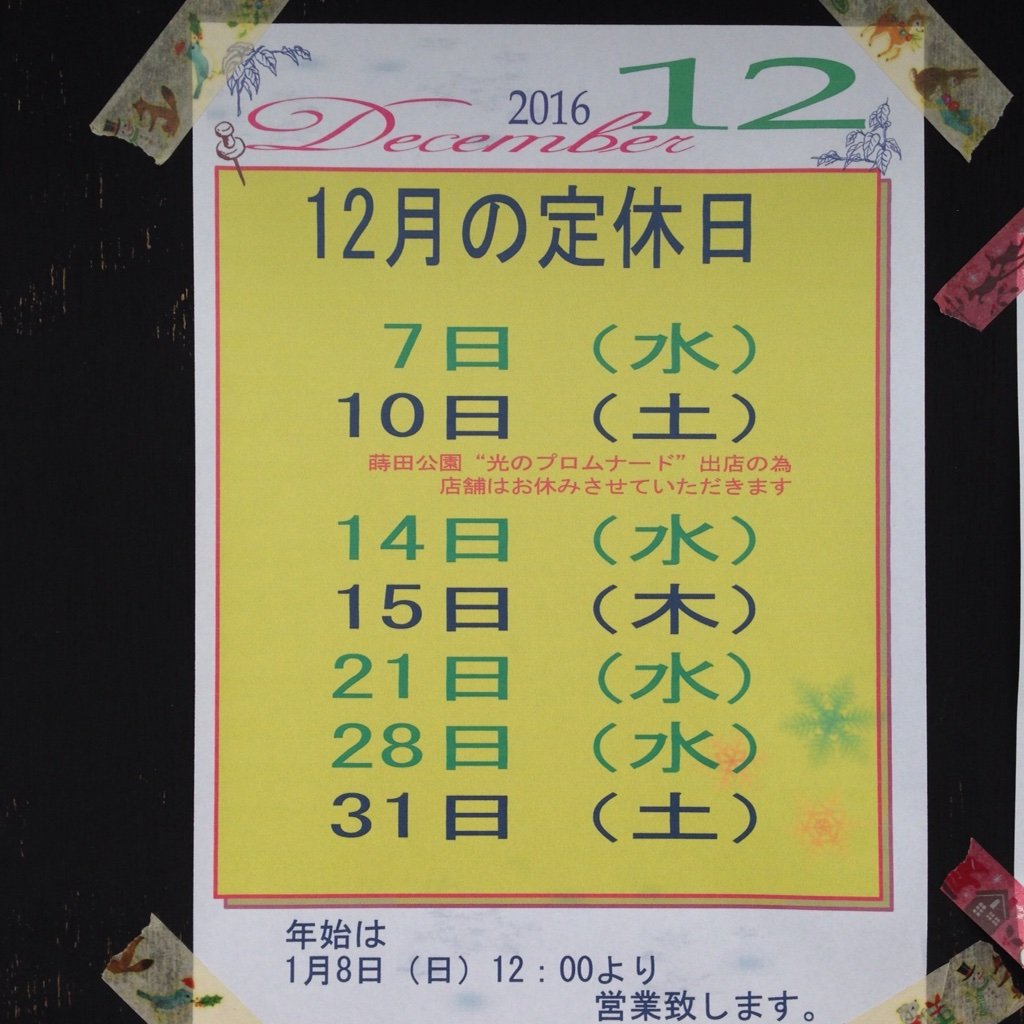 2016 December 12
12月の定休日
7日 （水）
10日 （土）
蒔田公園“光のプロムナード”出店の為
店舗はお休みさせていただきます
14日 （水）
15日 （木）
21日 （水）
28日 （水）
31日 （土）
年始は
1月8日（日）12：00より
営業致します。